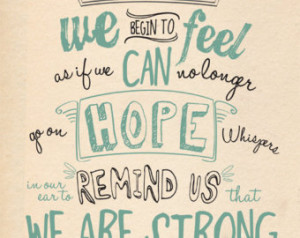 we BEGIN TO feel
as if we CAN no longer
go on HOPE Whispers
in our ear to REMIND US that
WE ARE STRONG